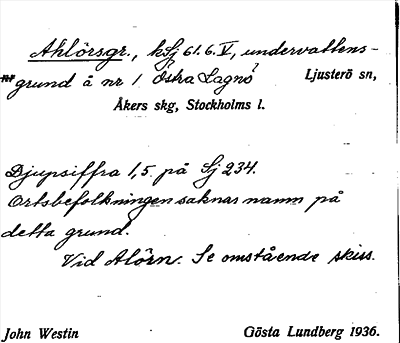 Ahlörsgr., kSj 61.6.V, undervattens-
grund å nr 1 Östra Lagnö Ljusterö sn,
Åkers skg, Stockholms l.
Djupsiffra 1,5 på Sj 234.
Ortsbefolkningen saknar namn på
detta grund.
Vid Alörn. Se omstående skiss.
John Westin Gösta Lundberg 1936.